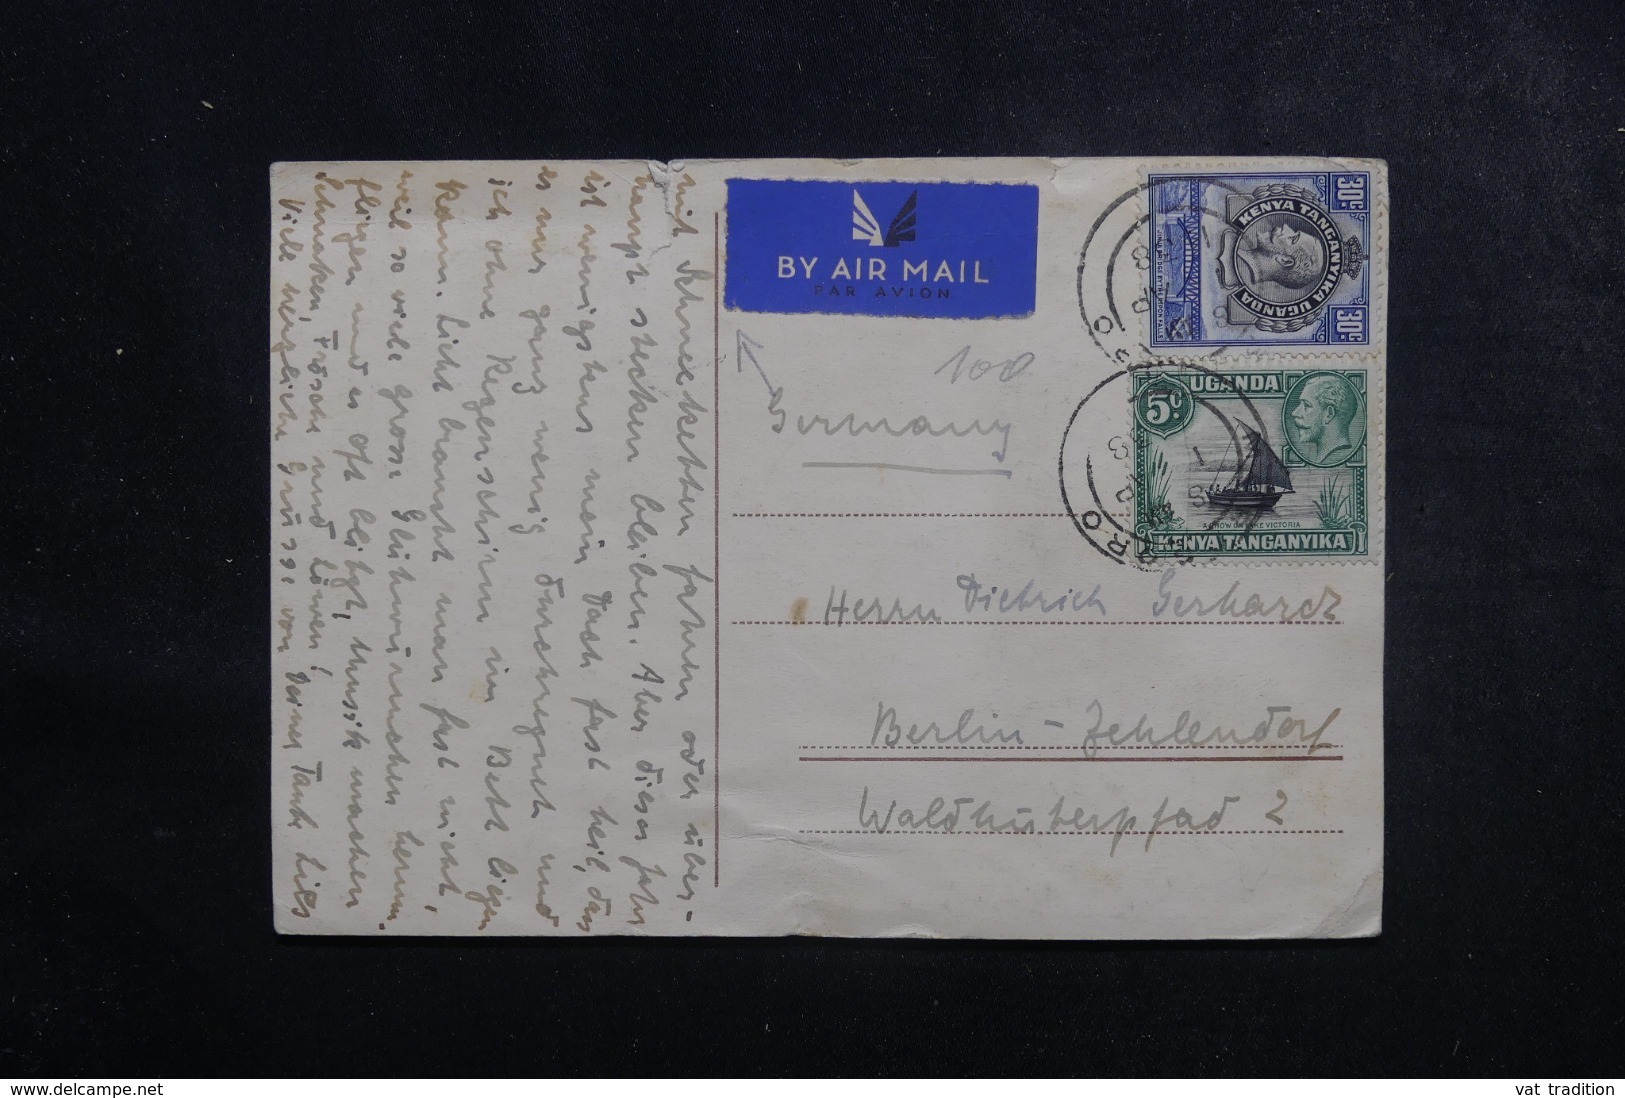 mit Schneeketten fahren oder über-
haupt stecken bleiben. Aber dieses Jahr
ist wenigstens mein Dach fast heil, das
es nur ganz wenig durchregnet und
ich ohne Regenschirm im Bett liegen
kann. Licht braucht man fast nicht,
weil so viele grosse Glühwürmchen herum-
fliegen und es oft blitzt, Musik machen
Schnaken, Frösche und Löwen!
Viele herzliche Grüsse von Deiner Tante Lies
BY AIR MAIL
PAR AVION
100
Germany
30c
KENYA TANGANYIKA UGANDA
30c
5c
UGANDA
A DHOW ON LAKE VICTORIA
KENYA TANGANYIKA
Herrn Dietrich Gerhardt
Berlin-Zehlendorf
Waldhüterpfad 2
delcampe.net
vat tradition